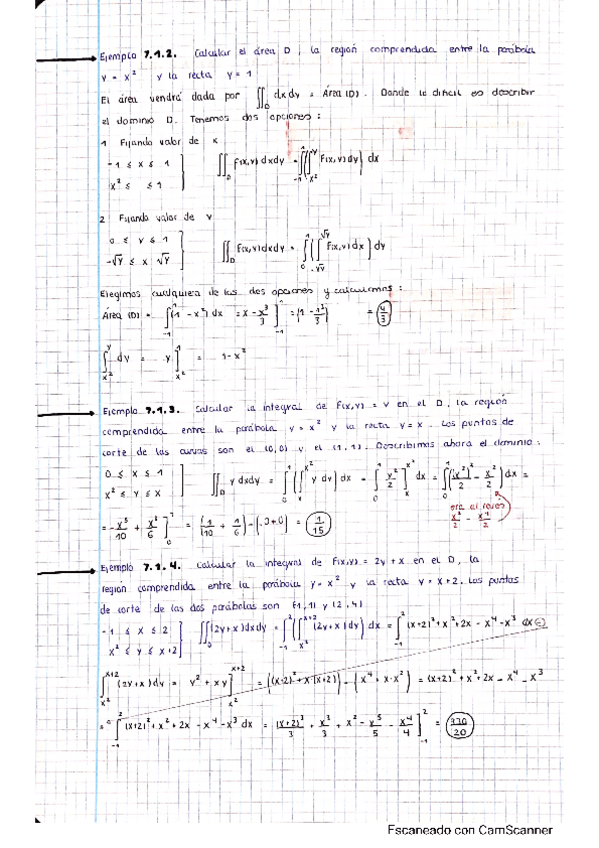 Ejemplo 7.1.2. Calcular el área D, la región comprendida entre la parábola
y = x² y la recta y = 1
El área vendrá dada por ∬_D dxdy = Área (D). Donde lo dificil es describir
el dominio D. Tenemos dos opciones:
1 Fijando valor de x
-1 ≤ x ≤ 1
x² ≤ ≤ 1
∬_D F(x,y) dxdy = ∫_{-1}^{1} (∫_{x²}^{y} F(x,y) dy) dx
2 Fijando valor de y
0 ≤ y ≤ 1
-√y ≤ x √y
∬_D F(x,y) dxdy = ∫_0^1 (∫_{-√y}^{√y} F(x,y) dx) dy
Elegimos cualquiera de las dos opciones y calculamos:
Área (D) = ∫_{-1}^{1} (1 - x²) dx = x - x³/3 ]_{-1}^{1} = (1 - 1³/3) = 4/3
∫_{x²}^{y} dy = y ]_{x²}^{1} = 1 - x²
Ejemplo 7.1.3. Calcular la integral de F(x,y) = y en el D, la región
comprendida entre la parábola y = x² y la recta y = x. Los puntos de
corte de las curvas son el (0,0) y el (1,1). Describimos ahora el dominio:
0 ≤ x ≤ 1
x² ≤ y ≤ x
∬_D y dxdy = ∫_0^1 (∫_x^{x²} y dy) dx = ∫_0^1 y²/2 ]_x^{x²} dx = ∫_0^1 ((x²)²/2 - x²/2) dx =
era al revés
x²/2 - x⁴/2
= -x⁵/10 + x³/6 ]_0^1 = (1/10 + 1/6) - (-0+0) = 1/15
Ejemplo 7.1.4. Calcular la integral de F(x,y) = 2y + x en el D, la
región comprendida entre la parábola y = x² y la recta y = x+2. Los puntos
de corte de las dos parábolas son (-1,1) y (2,4)
-1 ≤ x ≤ 2
x² ≤ y ≤ x+2
∬_D (2y+x) dxdy = ∫_{-1}^{2} (∫_{x²}^{x+2} (2y+x) dy) dx = ∫_{-1}^{2} (x+2)² + x² + 2x - x⁴ - x³ dx =
∫_{x²}^{x+2} (2y+x) dy = y² + xy ]_{x²}^{x+2} = ((x+2)² + x·(x+2)) - (x⁴ + x·x²) = (x+2)² + x² + 2x - x⁴ - x³
= ∫_{-1}^{2} (x+2)² + x² + 2x - x⁴ - x³ dx = (x+2)³/3 + x³/3 + x² - x⁵/5 - x⁴/4 ]_{-1}^{2} = 330/20
Escaneado con CamScanner